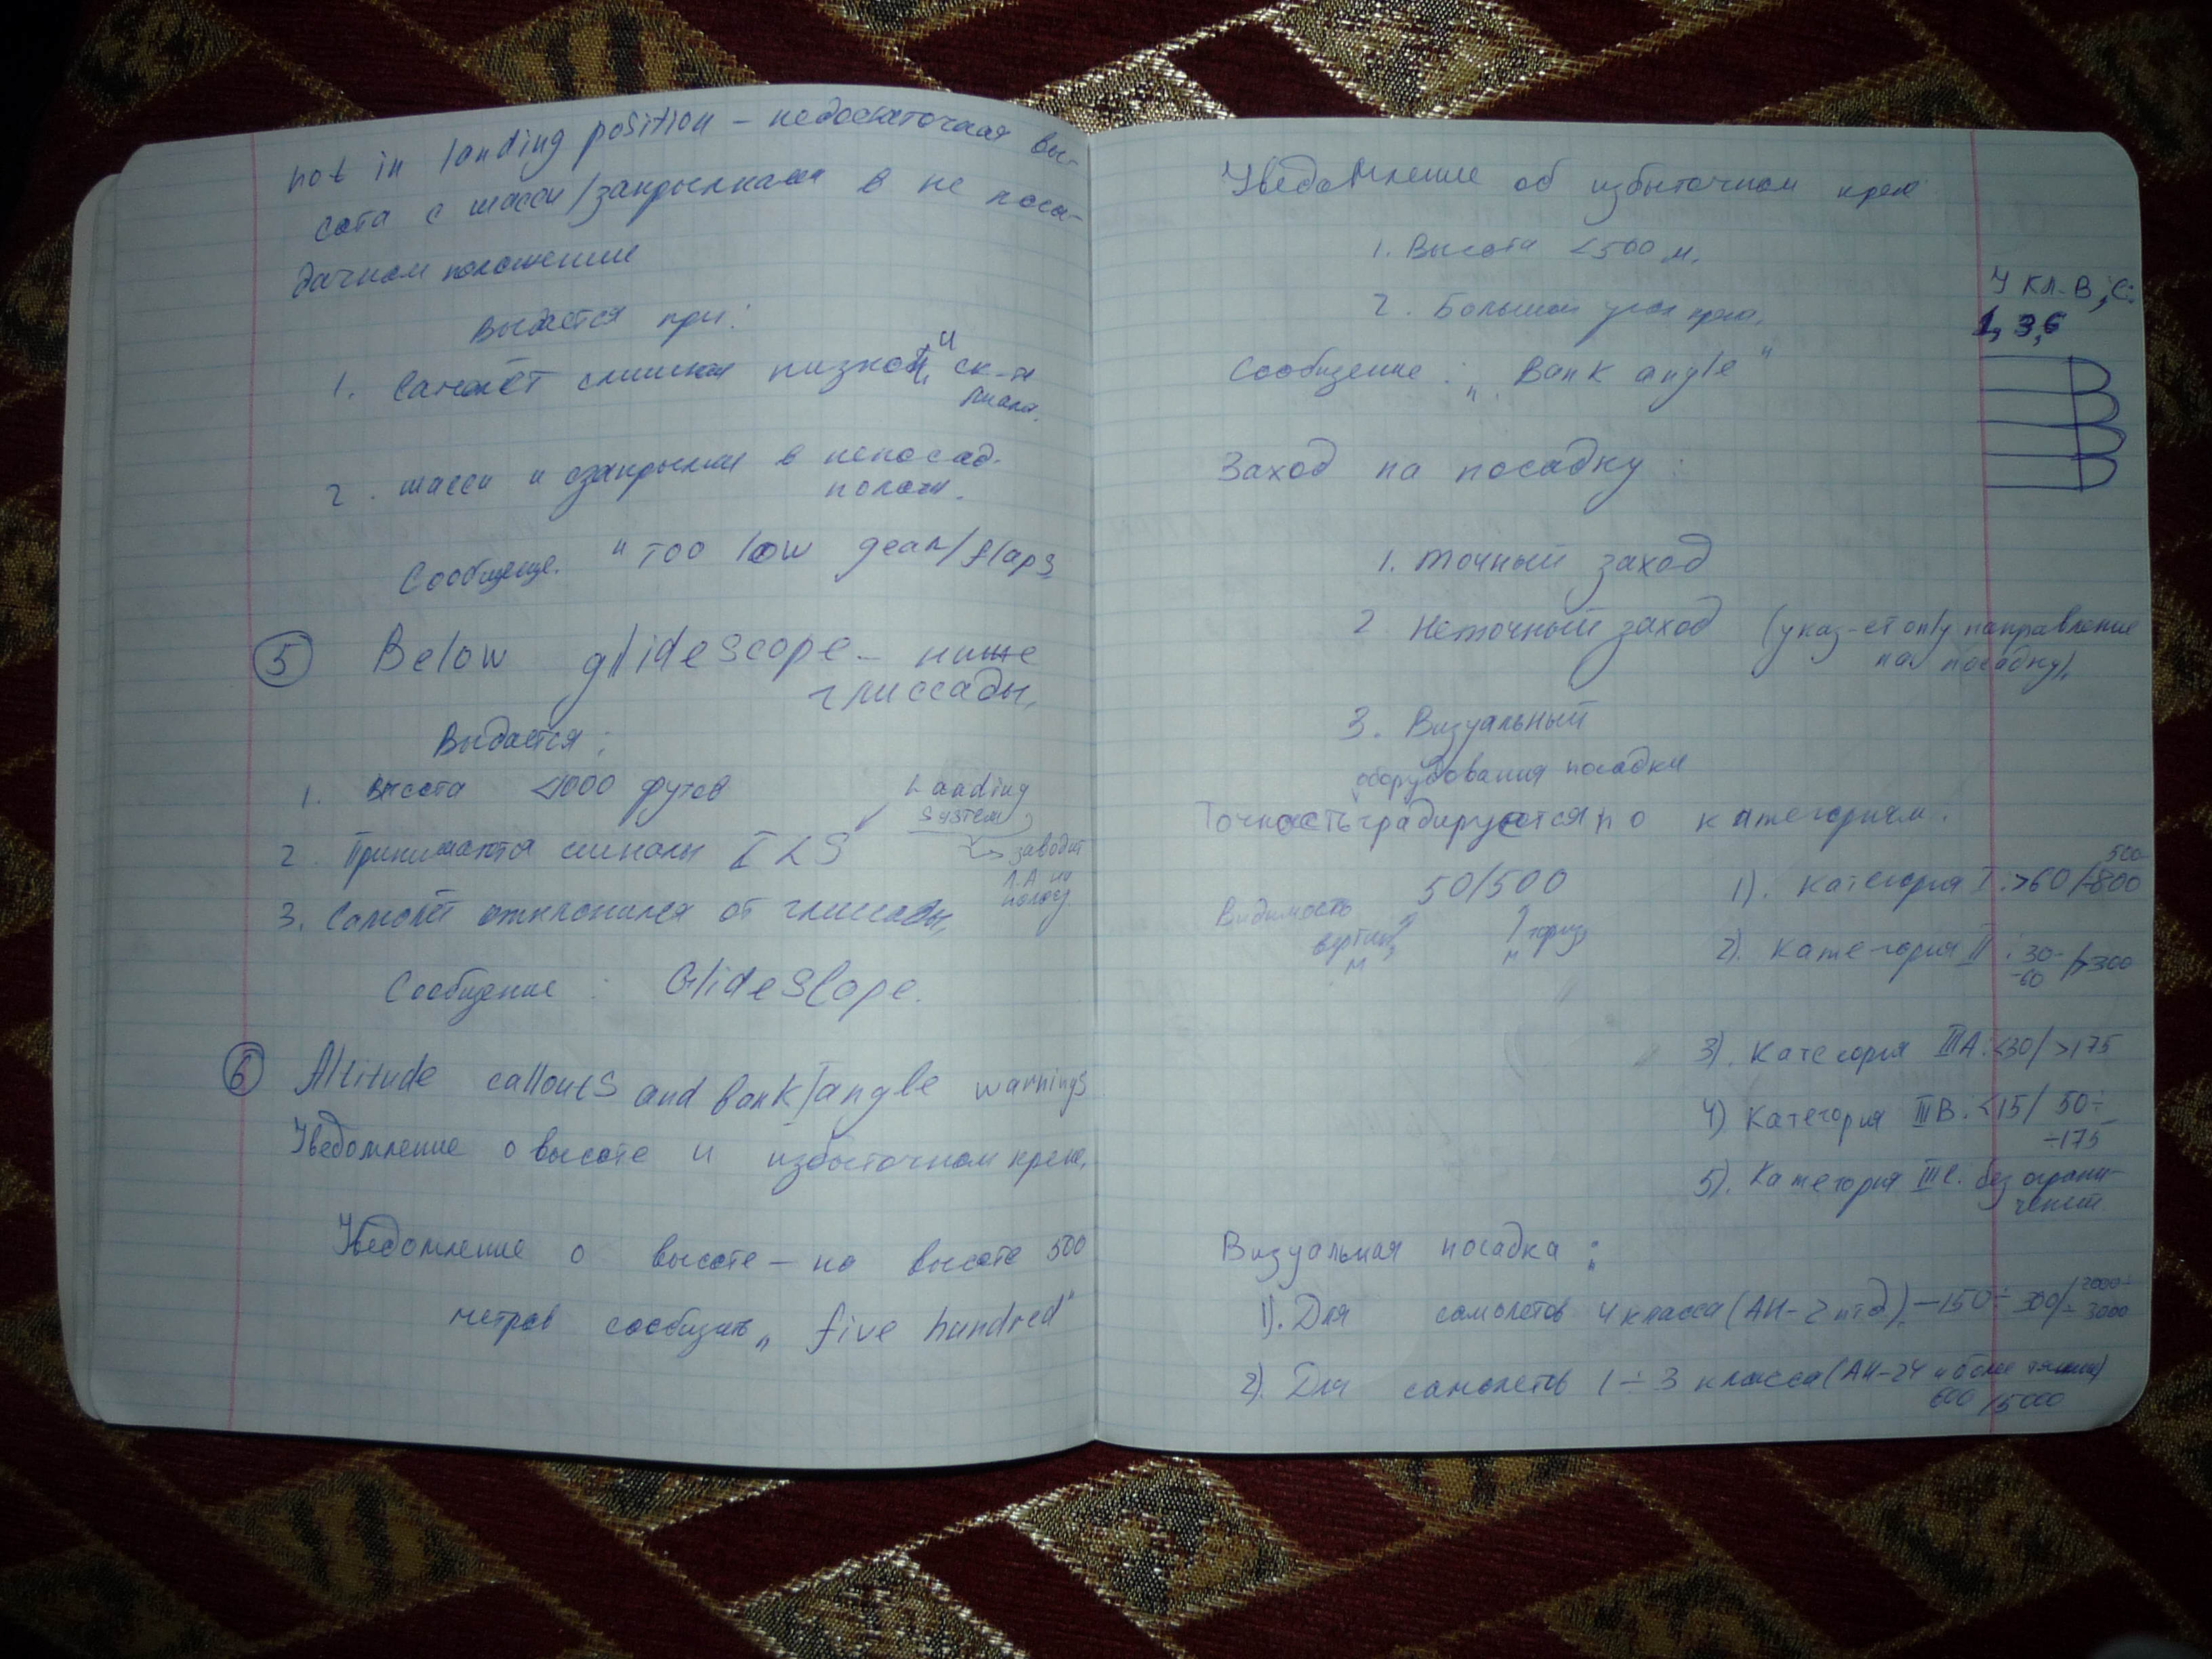 not in landing position – недостаточная вы-
сота с шасси/закрылками в не поса-
дочном положении
Выдается при:
1. Самолёт слишком низко и ск-ть
мала.
2. шасси и закрылки в непосад.
полож.
Сообщение. "Too low gear/flaps
5 Below glidescope – ниже
глиссады.
Выдается:
1. Высота <1000 футов
Landing
system
2. Принимаются сигналы ILS
заводит
Л.А на
полосу
3. Самолёт отклонился от глиссады.
Сообщение: Glideslope.
6 Altitude callouts and bank angle warnings
Уведомление о высоте и избыточном крене.
Уведомление о высоте – на высоте 500
метров сообщить „five hundred"
Уведомление об избыточном крене
1. Высота <500 м.
2. Большой угол крена.
Сообщение: „Bank angle"
4 кл. В, С:
1, 3, 6
Заход на посадку:
1. Точный заход
2. Неточный заход (указ-ет only направление
на посадку).
3. Визуальный
оборудования посадки
Точность градируется по категориям.
Видимость 50/500
вертик. гориз
м м
1). Категория I: >60/500-
÷800
2). Категория II: 30-
-60/>300
3). Категория IIIA: <30/>175
4) Категория IIIB: <15/50÷
÷175
5). Категория IIIC: без ограни-
чений.
Визуальная посадка:
1). Для самолетов 4 класса (АН-2 итд). – 150÷300/2000÷
÷3000
2). Для самолетов 1÷3 класса (АН-24 и более тяжелые)
600/5000